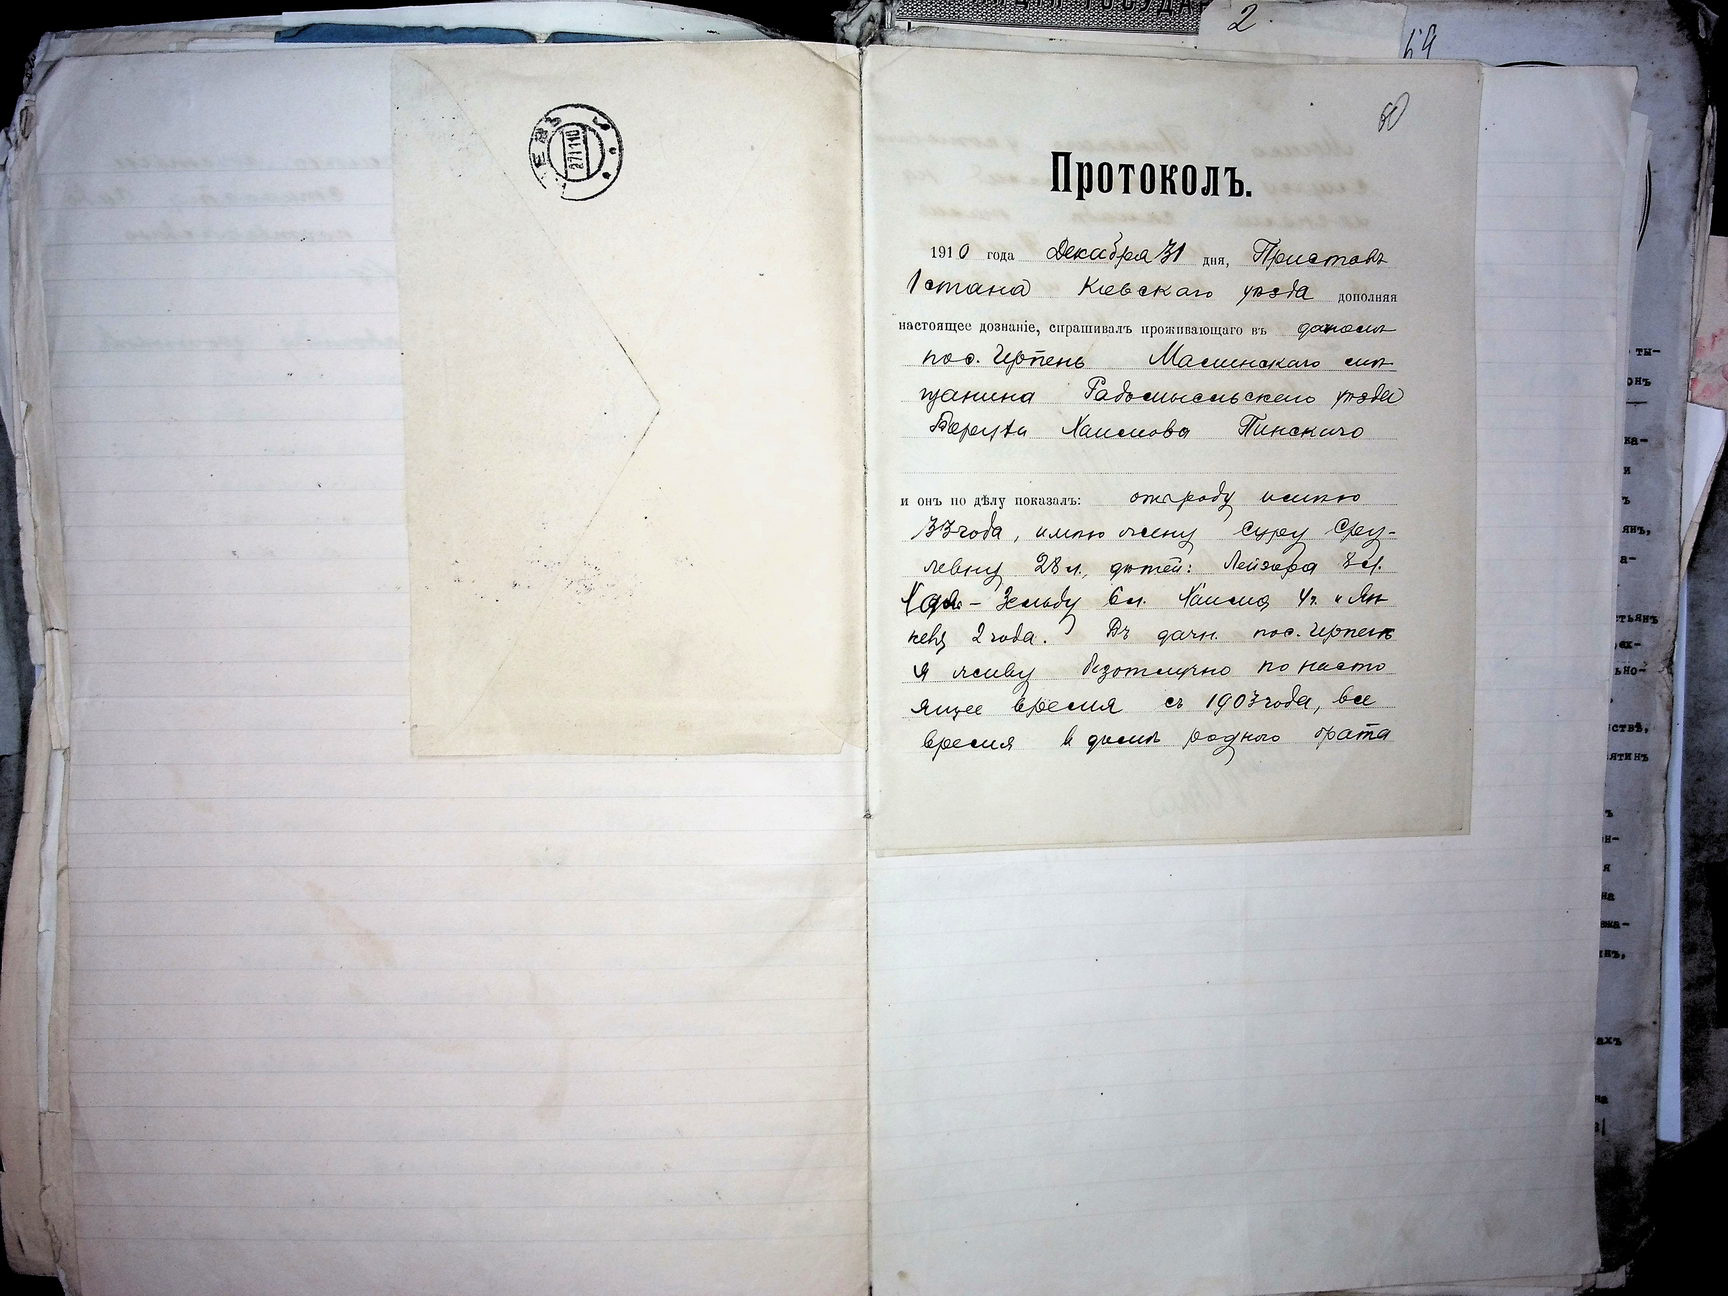 2
59
60
ЕВЪ
271110
Протоколъ.
1910 года Декабря 31 дня, Приставъ
1 стана Кіевскаго уѣзда дополняя
настоящее дознаніе, спрашивалъ проживающаго въ дачномъ
пос. Ирпень Малинскаго мѣ-
щанина Радомысльскаго уѣзда
Боруха Хаимова Пинскаго
и онъ по дѣлу показалъ: отъ роду имѣю
33 года, имѣю жену Суру Сру-
левну 28 л., дѣтей: Лейзера 8 л.
Зельду 6 л. Хаима 4 г. и Ян
келя 2 года. Въ дачн. пос. Ирпень
я живу безотлучно по насто
ящее время съ 1903 года, все
время в домѣ родного брата